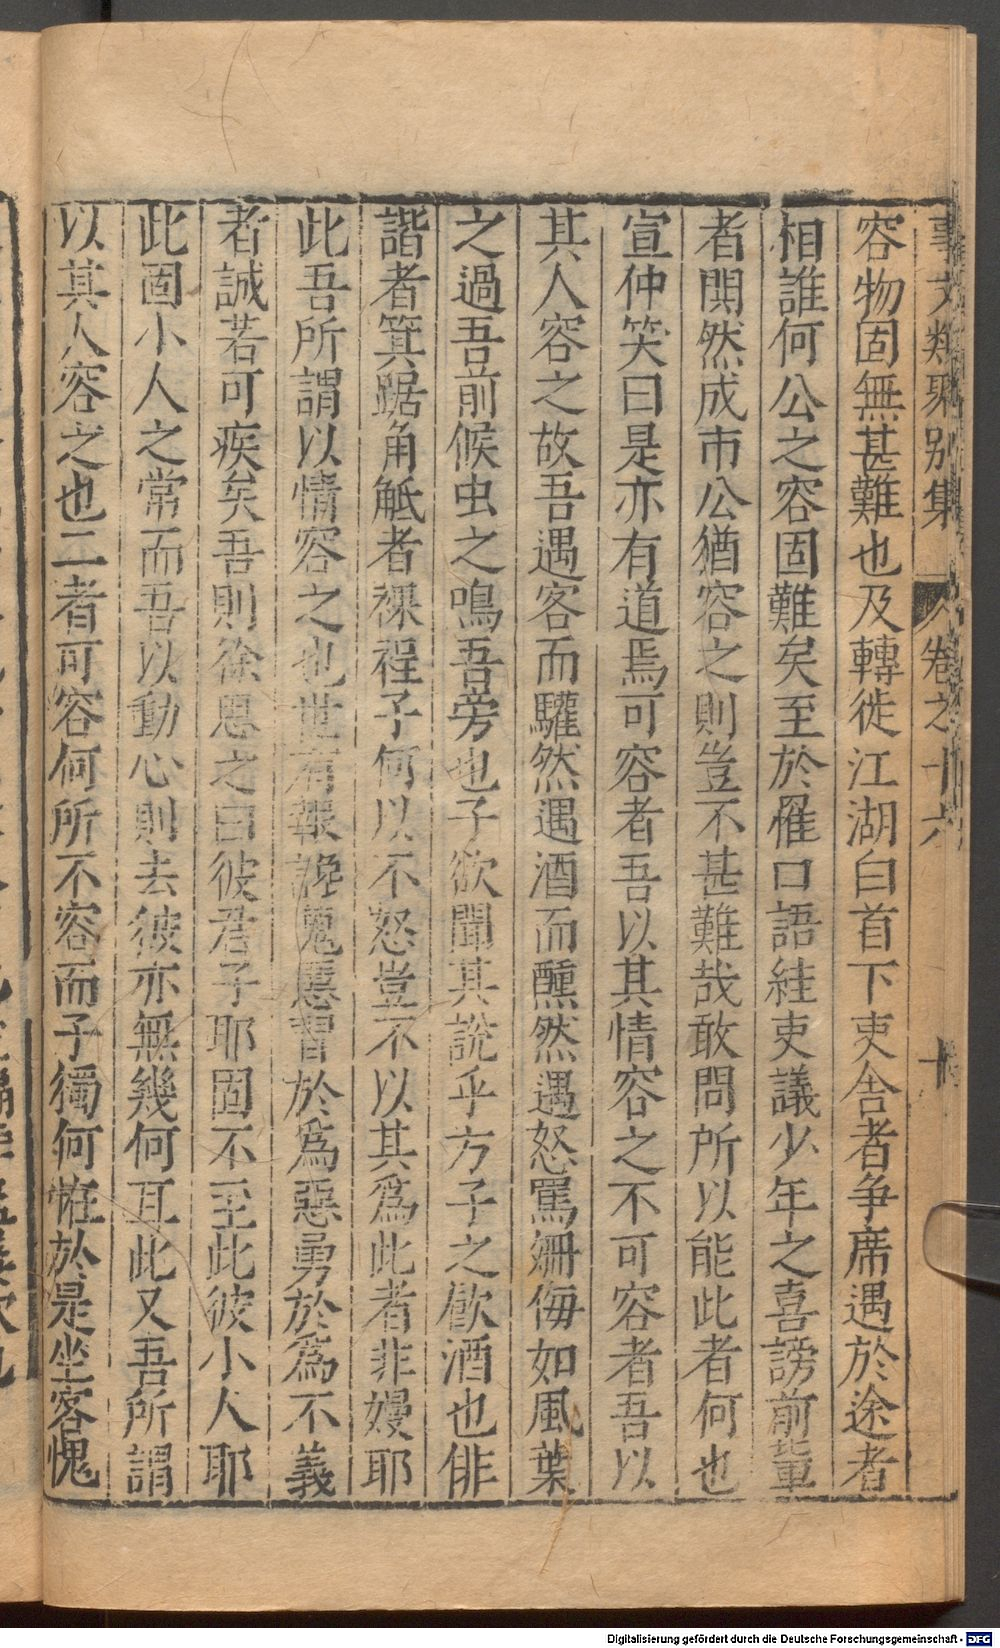 事文類聚别集 卷之十六 十
容物固無甚難也及轉徙江湖白首下吏舍者争席遇於途者
相誰何公之容固難矣至於僱口語絓吏議少年之喜謗前軰
者閧然成市公猶容之則豈不甚難哉敢問所以能此者何也
宣仲笑曰是亦有道焉可容者吾以其情容之不可容者吾以
其人容之故吾遇客而驩然遇酒而醺然遇怒罵姍侮如風葉
之過吾前候虫之鳴吾旁也子欲聞其說乎方子之飲酒也俳
諧者箕踞角觝者裸裎子何以不怒豈不以其為此者非嫚耶
此吾所謂以情容之也世有報讒蒐慝習於為惡勇於為不義
者誠若可疾矣吾則徐思之曰彼君子耶固不至此彼小人耶
此固小人之常而吾以動心則去彼亦無幾何耳此又吾所謂
以其人容之也二者可容何所不容而子獨何恠於是坐客愧
Digitalisierung gefördert durch die Deutsche Forschungsgemeinschaft - DFG